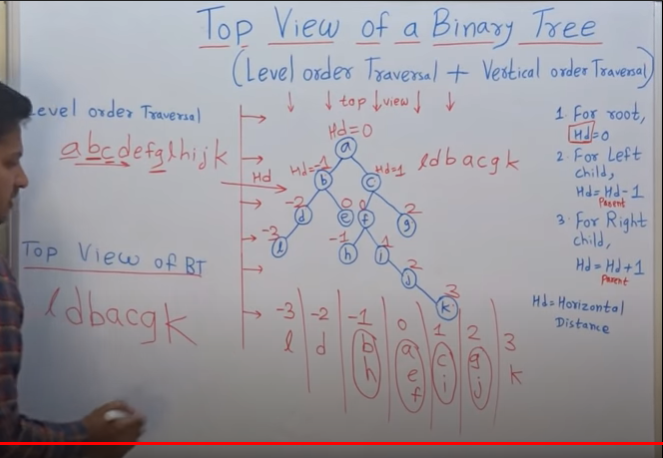 Top View of a Binary Tree
(Level order Traversal + Vertical order Traversal)
Level order Traversal
abcdefglhijk
top view
Hd=0
a
Hd=-1
b
Hd=1
c
ldbacgk
Hd
-2
d
0
e
0
f
2
g
-3
l
-1
h
1
i
2
j
3
k
Top View of BT
ldbacgk
-3 -2 -1 0 1 2 3
l d b a c g k
h e i j
f
1. For root,
Hd=0
2. For Left
child,
Hd= Hd-1
Parent
3. For Right
child,
Hd= Hd+1
Parent
Hd=Horizontal
Distance